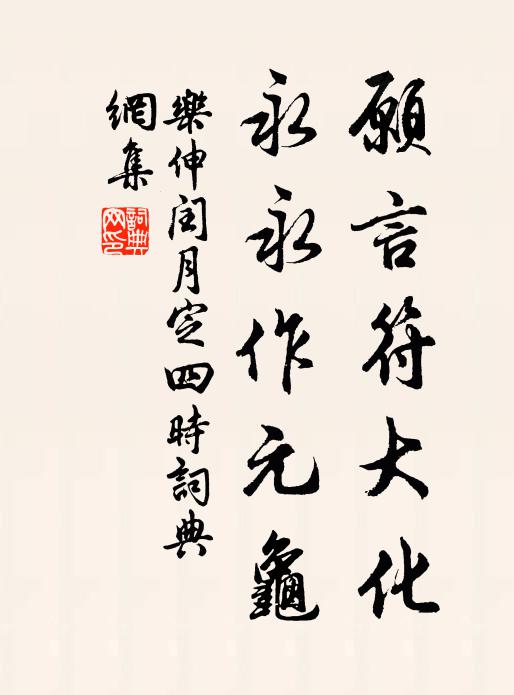 願言符大化
永永作元龜
樂伸閏月定四時詞典
網集
詞典
网印